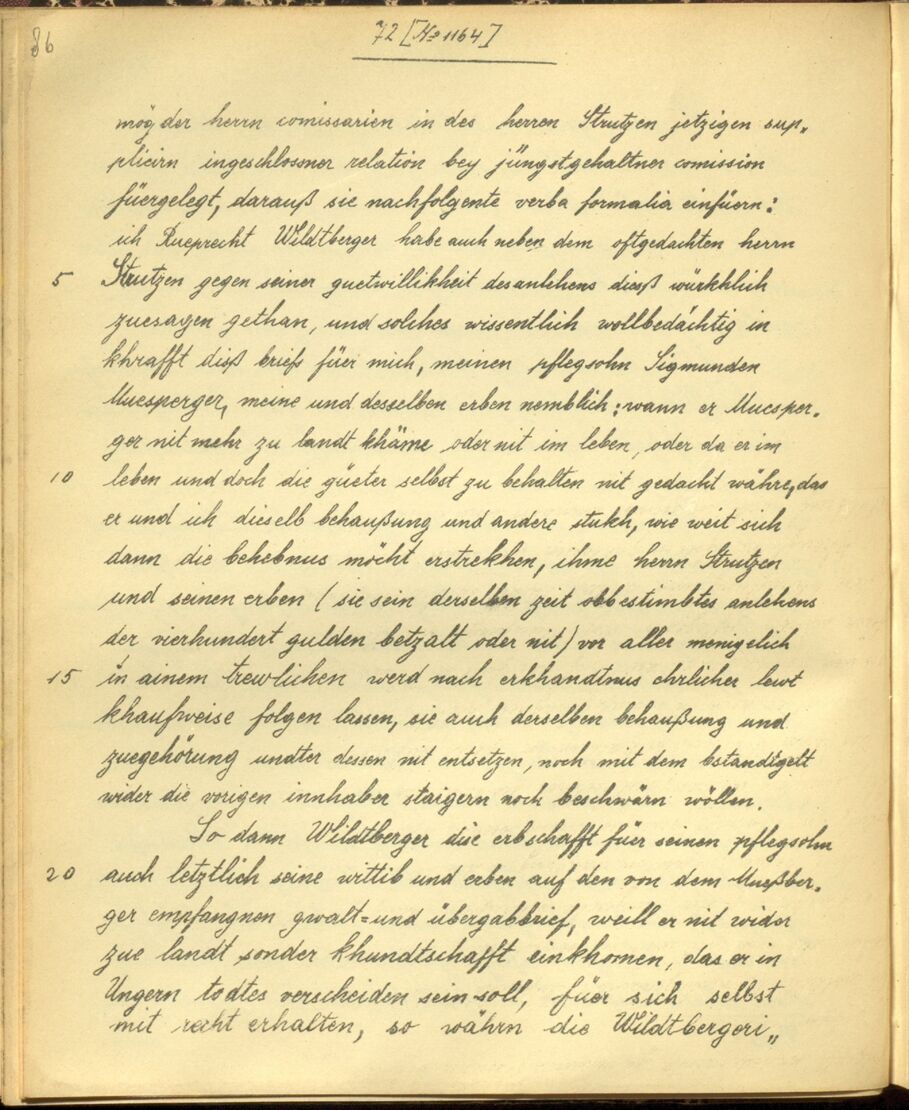 86
72 [No 1164]
mög der herrn comissarien in des herren Strutzen jetzigen sup„
plicirn ingeschlossner relation bey jüngstgehaltner comission
füergelegt, darauß sie nachfolgente verba formalia einfüern:
ich Rueprecht Wildtberger habe auch neben dem oftgedachten herrn
5 Strutzen gegen seiner guetwillikheit des anlehens dieß würkhlich
zuesagen gethan, und solches wissentlich wollbedächtig in
khrafft diß briefs füer mich, meinen pflegsohn Sigmunden
Muesperger, meine und desselben erben nemblich: wann er Muesper„
ger nit mehr zu landt khäme oder nit im leben, oder da er im
10 leben und doch die güeter selbst zu behalten nit gedacht währe, das
er und ich dieselb behaußung und andere stukh, wie weit sich
dann die behebnus möcht erstrekhen, ihme herrn Strutzen
und seinen erben (sie sein derselben zeit obbestimbtes anlehens
der vierhundert gulden betzalt oder nit) vor aller menigelich
15 in ainem trewlichen werd nach erkhandtnus ehrlicher lewt
khaufweise folgen lassen, sie auch derselben behaußung und
zuegehörung undter dessen nit entsetzen, noch mit dem bstandtgelt
wider die vorigen innhaber staigern noch beschwärn wöllen.
So dann Wildtberger dise erbschafft füer seinen pflegsohn
20 auch letztlich seine wittib und erben auf den von dem Mueßber„
ger empfangnen gwalt= und übergabbrief, weill er nit wider
zue landt sonder khundtschafft einkhomen, das er in
Ungern todtes verscheiden sein soll, füer sich selbst
mit recht erhalten, so währn die Wildtbergeri„